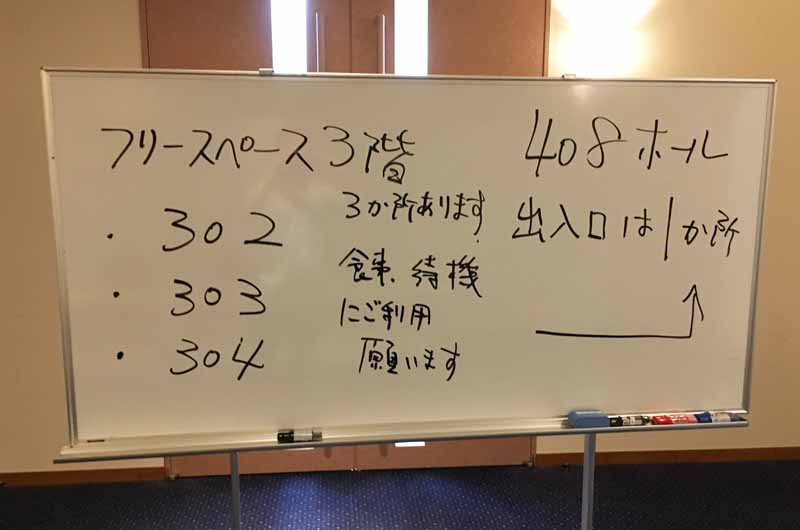 フリースペース3階
・302
・303
・304
3か所あります.
食事、待機
にご利用
願います
408ホール
出入口は1か所